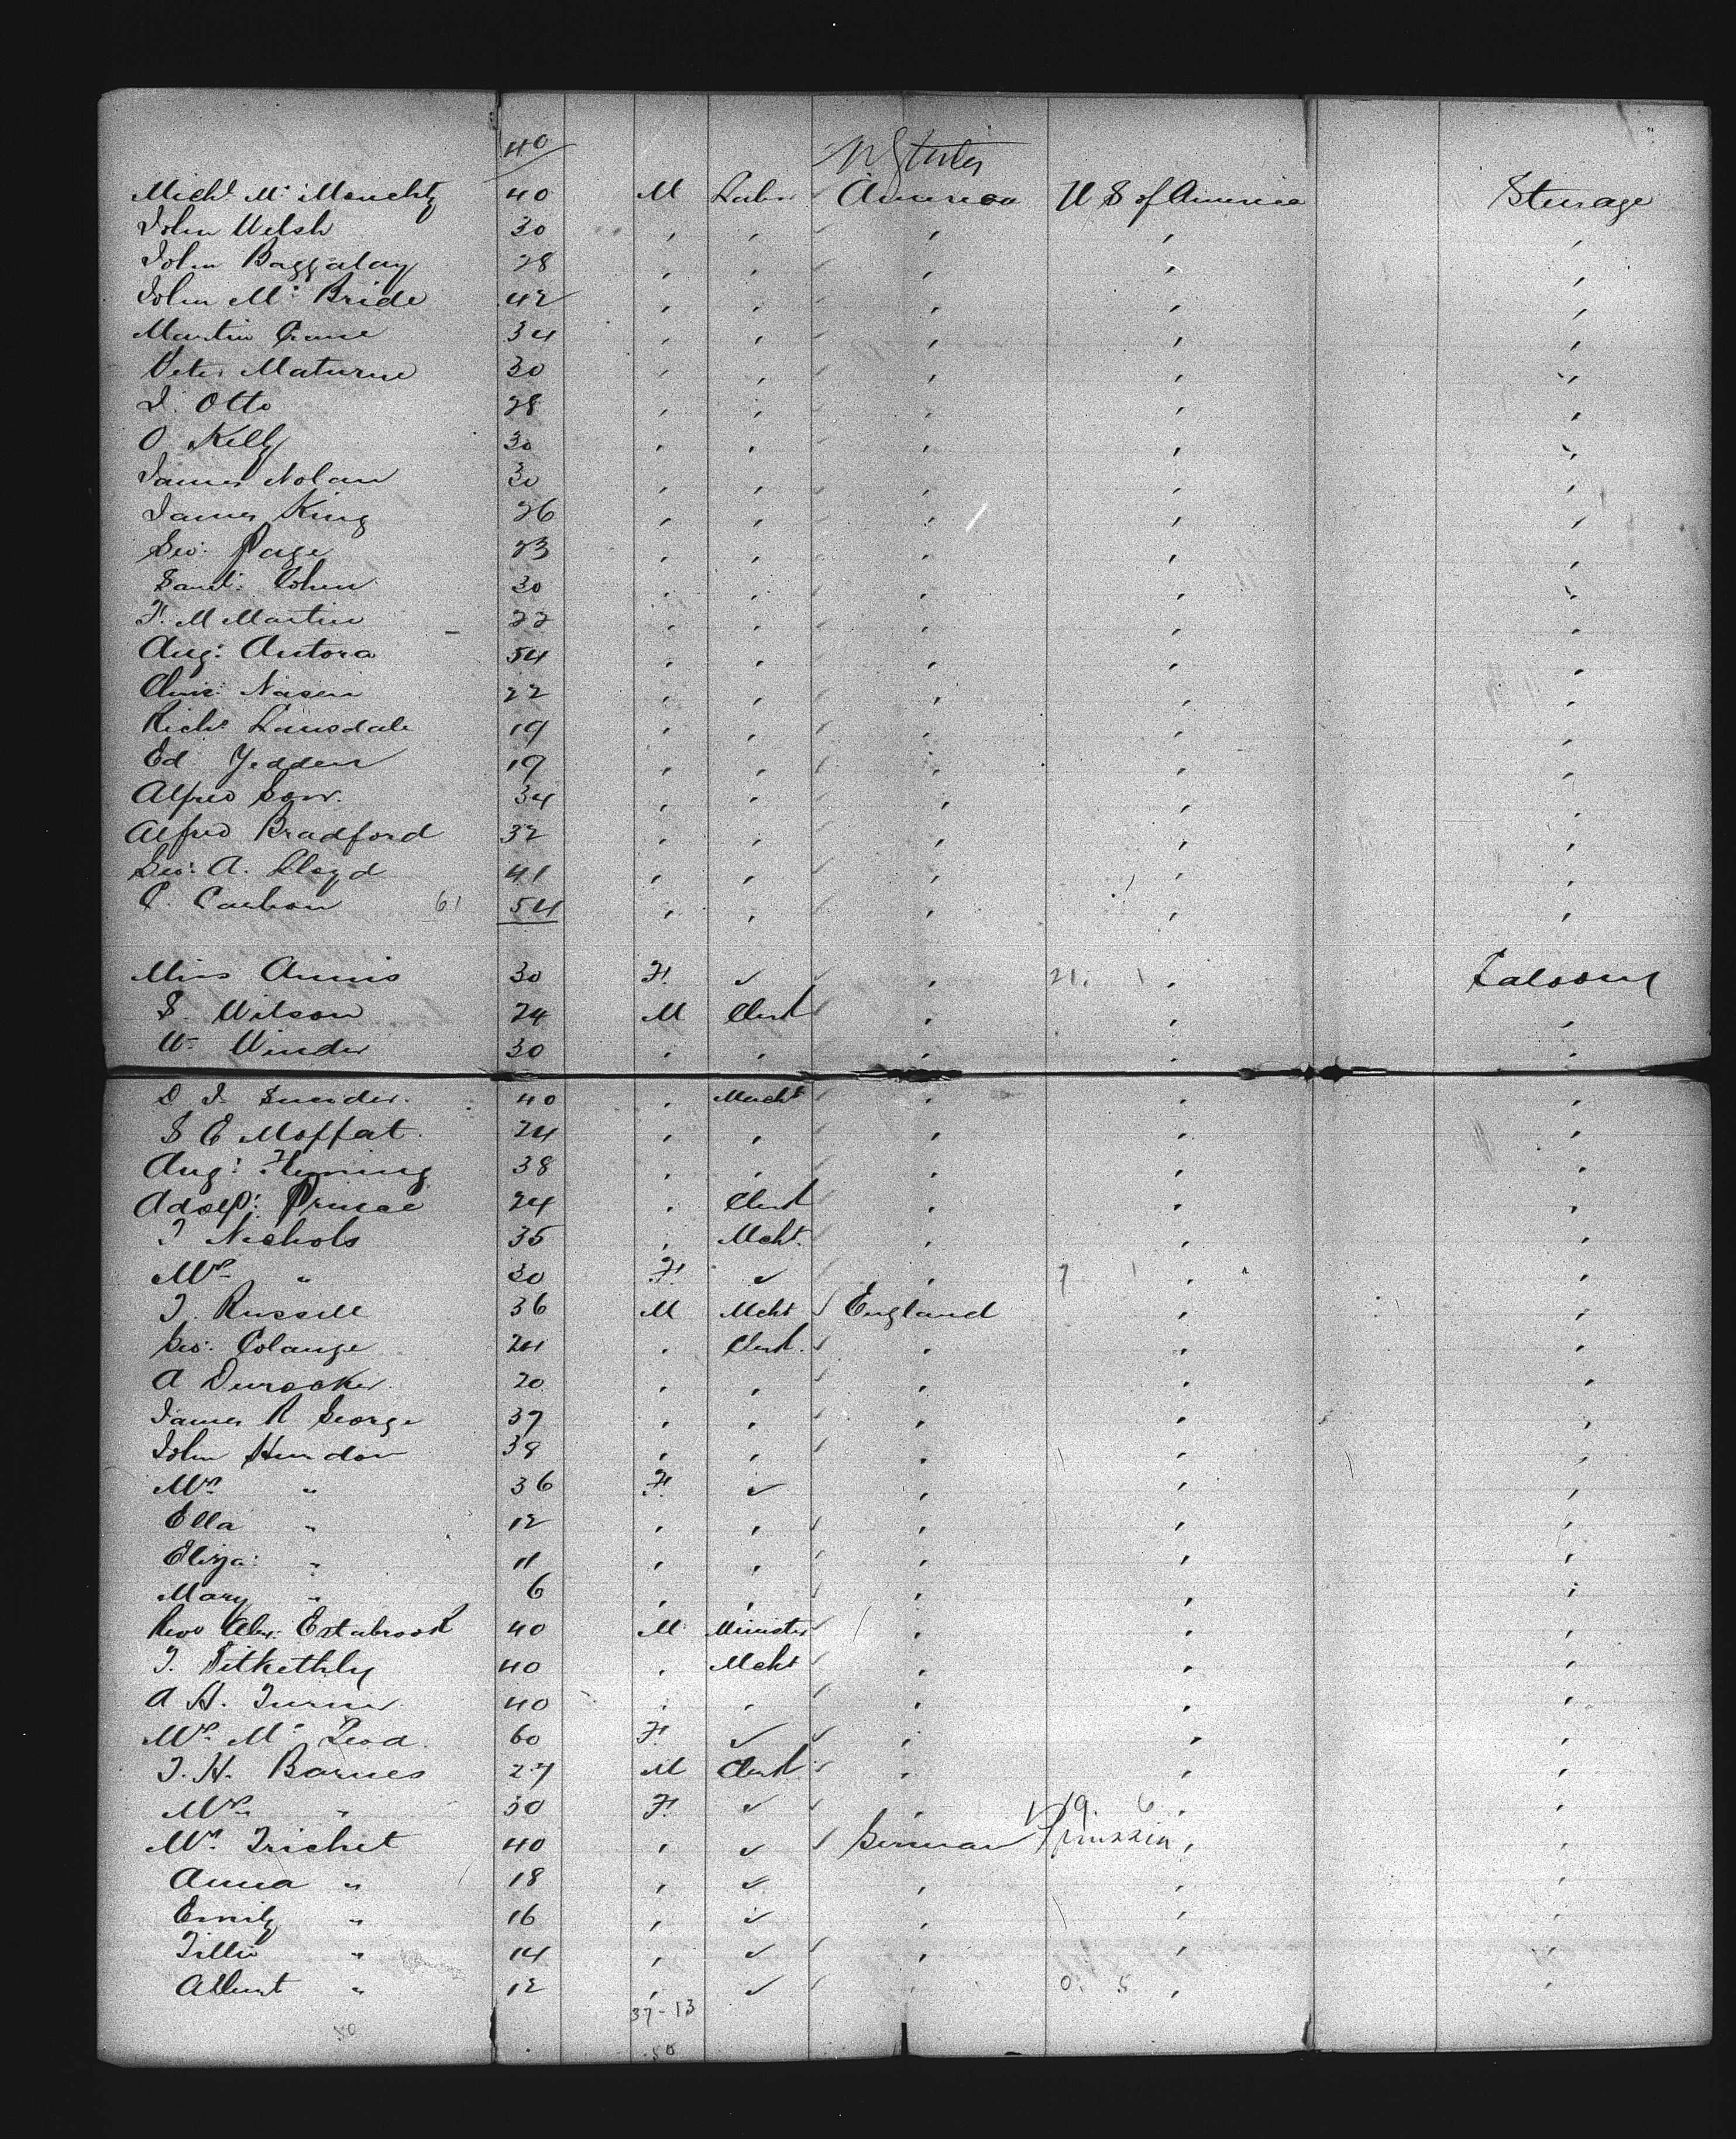 40
U States
Michl Mc 40 M Labr America U S of America Steerage
John Welsh 30 " " " " "
John Baggalay 28 " " " " "
John Mc Bride 42 " " " " "
Martin Crane 34 " " " " "
Peter Maturne 30 " " " " "
J. Otto 28 " " " " "
O Kelly 30 " " " " "
James Nolan 30 " " " " "
James King 26 " " " " "
Geo: Page 23 " " " " "
Saml: Cohen 30 " " " " "
F. M Martin 22 " " " " "
Aug: Antora 54 " " " " "
Chris: Nasen 22 " " " " "
Richd Lansdale 19 " " " " "
Ed Yedden 19 " " " " "
Alfred 34 " " " " "
Alfred Bradford 32 " " " " "
Geo: A. Lloyd 41 " " " " "
P. Carbon 61 54 " " " " "
Miss Annis 30 F. ✓ " 21. 1 " Saloon
S. Wilson 24 M Clerk " " "
Wm Winder 30 " " " " "
D J. 40 " Mercht " " "
S E Moffat 24 " " " " "
Aug: Fleming 38 " " " " "
Adolp: Prince 24 " Clerk " " "
J Nichols 35 " Mcht. " " "
Mrs " 30 F. ✓ " 7 1 " "
J. Russell 36 M Mcht England " "
Geo: Colange 24 " Clerk. " " "
A Durocker 20 " " " " "
James R George 37 " " " " "
John Hendon 38 " " " " "
Mrs " 36 F. ✓ " " "
Ella " 12 " " " " "
Eliza: " 11 " " " " "
Mary " 6 " " " " "
Revd Alex: Estabrook 40 M Minister " " "
J. Pitkethly 40 " Mcht " " "
A H. Turner 40 " " " " "
Mrs Mc Leod 60 F. ✓ " " "
J. H. Barnes 27 M Clerk " " "
Mrs " 30 F. ✓ " 19. 6 " "
Mrs Trichet 40 " ✓ German Prussia " "
Anna " 18 " ✓ " " "
Emily " 16 " ✓ " " "
Tillie " 14 " ✓ " " "
Albert " 12 " ✓ " 0. 5 " "
37-13
50 50